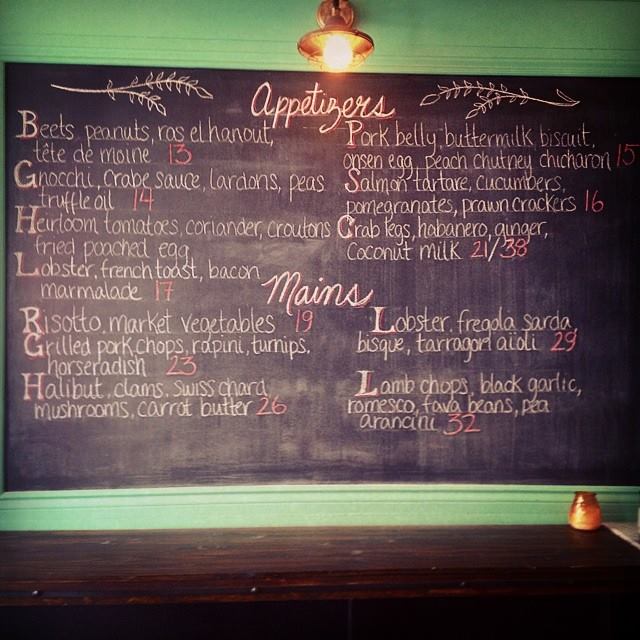 Appetizers
Beets, peanuts, ras el hanout,
tête de moine 13
Gnocchi, crabe sauce, lardons, peas
truffle oil 14
Heirloom tomatoes, coriander, croutons
fried poached egg
Lobster, french toast, bacon
marmalade 17
Pork belly, buttermilk biscuit,
onsen egg, peach chutney chicharon 15
Salmon tartare, cucumbers,
pomegranates, prawn crackers 16
Crab legs, habanero, ginger,
Coconut milk 21/38
Mains
Risotto, market vegetables 19
Grilled pork chops, rapini, turnips,
horseradish 23
Halibut, clams, swiss chard
mushrooms, carrot butter 26
Lobster, fregola sarda,
bisque, tarragon aioli 29
Lamb chops, black garlic,
romesco, fava beans, pea
arancini 32